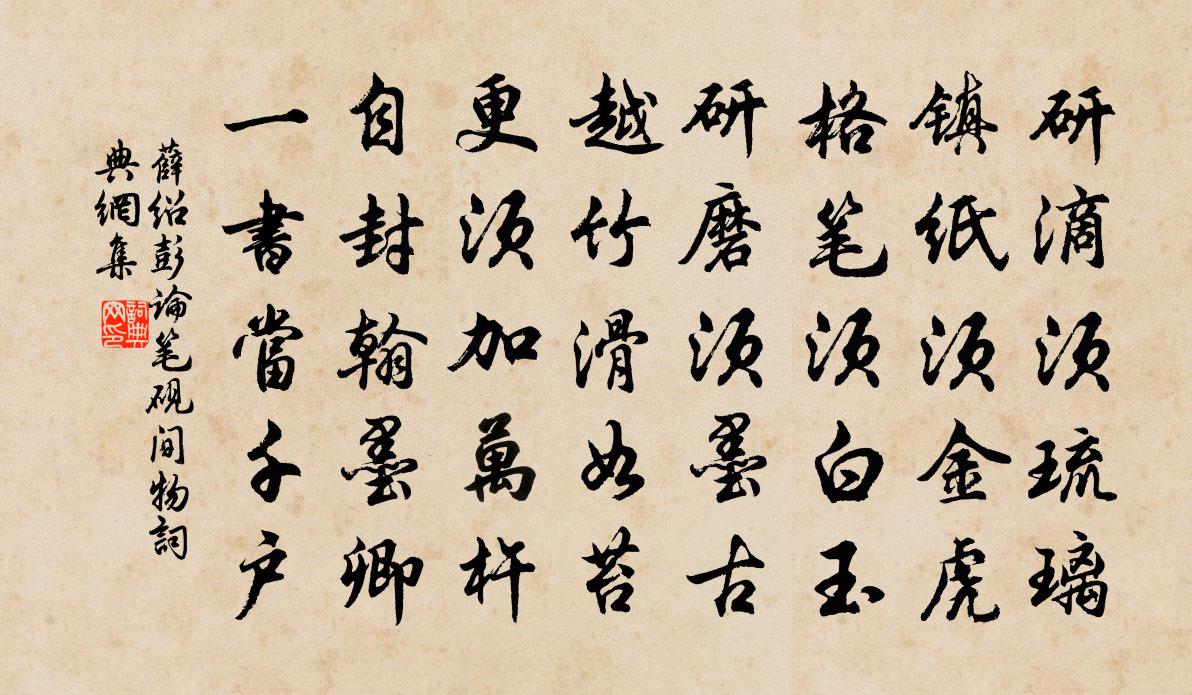 研滴须琉璃
镇纸须金虎
格笔须白玉
研磨须墨古
越竹滑如苔
更须加萬杵
自封翰墨卿
一書當千户
薛绍彭論笔砚间物詞
典網集
詞典网印